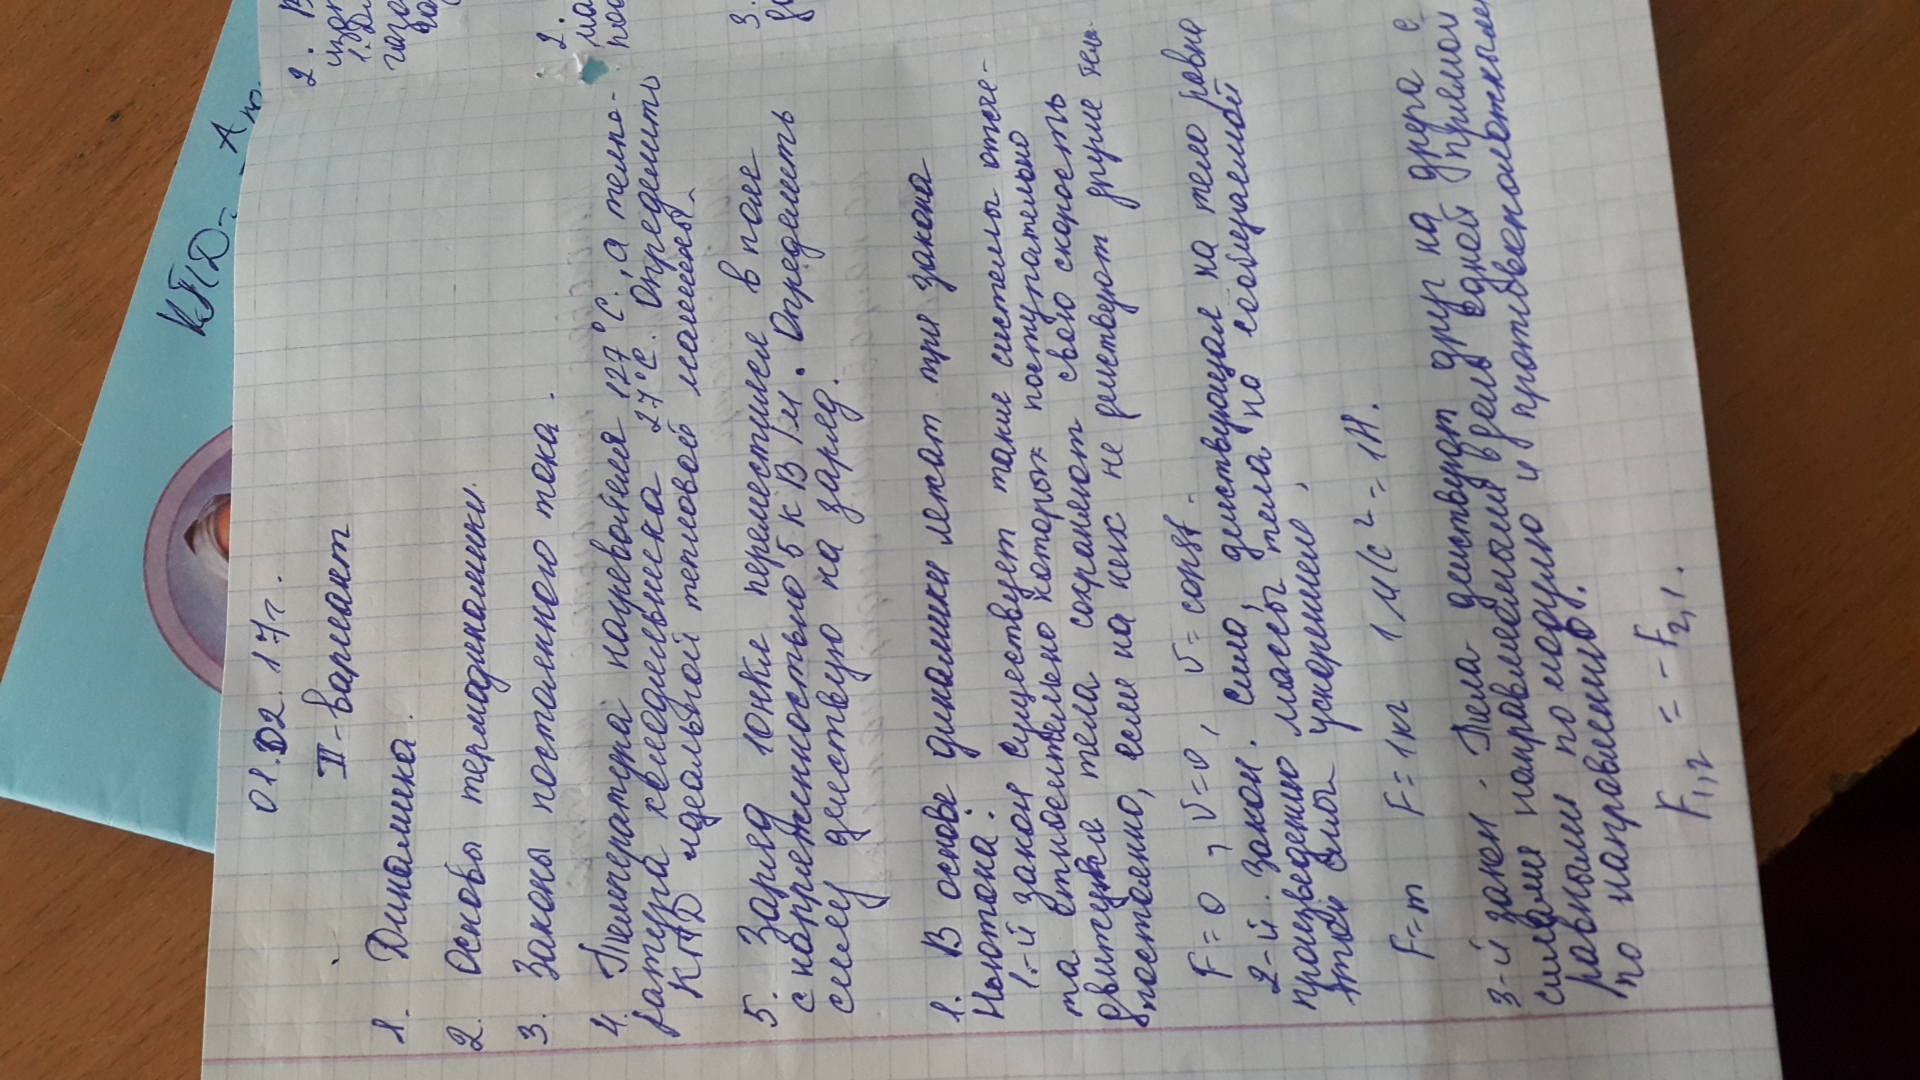 01.02.17г.
II-вариант
1. Динамика.
2. Основы термодинамики.
3. Законы постоянного тока.
4. Температура нагревателя 127°С, а темпе-
ратура холодильника 27°С. Определить
КПД идеальной тепловой машины.
5. Заряд 10нКл переместился в поле
с напряженностью 5 кВ/м. Определить
силу действую на заряд.
1. В основе динамики лежат три закона
Ньютона:
1.-й закон существует такие системы отсче-
та относительно которых поступательно
движущиеся тела сохраняют свою скорость
постоянно, если на них не действуют другие тела
F=0, V=0, V=const.
2-й. закон. сила, действующая на тело равна
произведению массы тела на сообщаемой
этой силы ускорением,
F=m F=1кг 1м/с²=1Н.
3-й закон. Тела действуют друг на друга с
силами направленными вдоль одной прямой
равными по модулю и противоположными
по направлению.
F1,2 = -F2,1.
КПД-
2. В
2.
3.